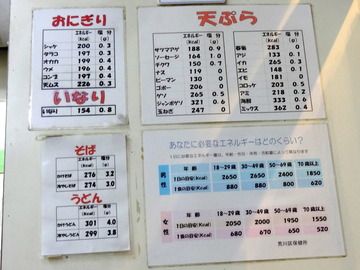 おにぎり
エネルギー 塩分
(Kcal) (g)
シャケ 200 0.3
タラコ 197 0.4
オカカ 199 0.4
ウメ 196 0.4
コンブ 197 0.4
天ムス 226 3.3
いなり
いなり 154 0.8
天ぷら
エネルギー 塩分
(Kcal) (g)
サツマアゲ 188 0.9
ソーセージ 164 0.1
チクワ 150 0.7
ナス 119 0
ピーマン 130 0
ゴボー 206 0
ゲソ 265 0.5
ジャンボゲソ 321 0.6
玉ねぎ 247 0
エネルギー 塩分
(Kcal) (g)
春菊 283 0
アジ 133 0.1
イカ 265 0.3
エビ 148 0.1
イモ 163 0
コロッケ 209 0.5
アミ 218 0.2
海鮮 333 0.6
ミックス 362 0.4
そば
エネルギー 塩分
(Kcal) (g)
かけそば 276 3.2
冷やしそば 274 3.0
うどん
エネルギー 塩分
(Kcal) (g)
かけうどん 301 4.0
冷やしうどん 299 3.8
あなたに必要なエネルギーはどのくらい?
男性
年齢 18～29歳 30～49歳 50～69歳 70歳以上
1日の目安(Kcal) 2650 2650 2400 1850
1食の目安(Kcal) 880 880 800 620
女性
年齢 18～29歳 30～49歳 50～69歳 70歳以上
1日の目安(Kcal) 2050 2000 1950 1550
1食の目安(Kcal) 680 670 650 520
荒川区保健所